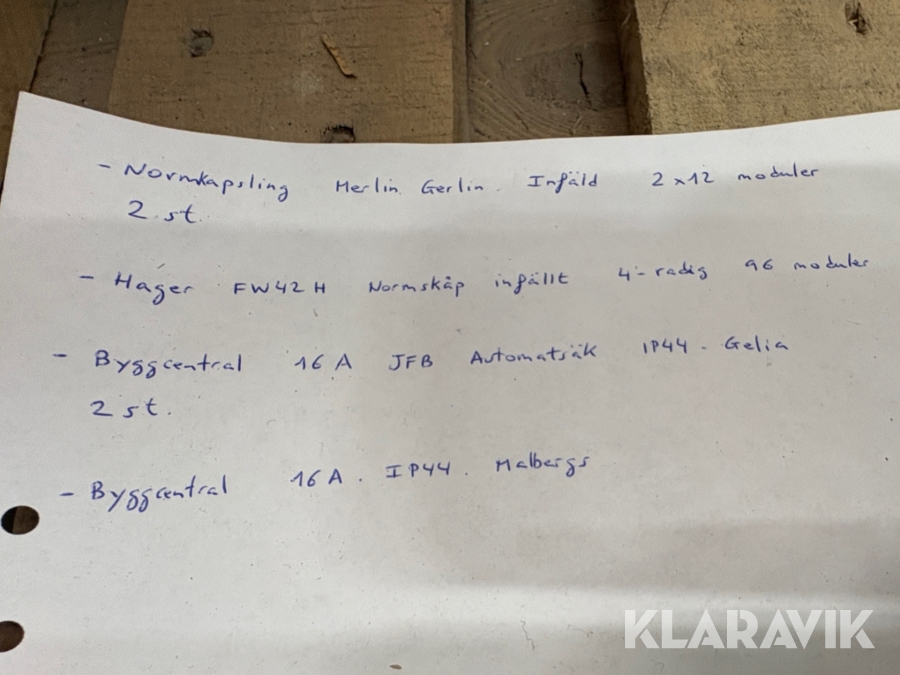 - Normkapsling Merlin Gerlin. Infäld 2x12 moduler
2 st.
- Hager FW42H Normskåp infällt 4-radig 96 moduler
- Byggcentral 16A JFB Automatsäk IP44 - Gelia
2 st.
- Byggcentral 16A. IP44. Malbergs
KLARAVIK